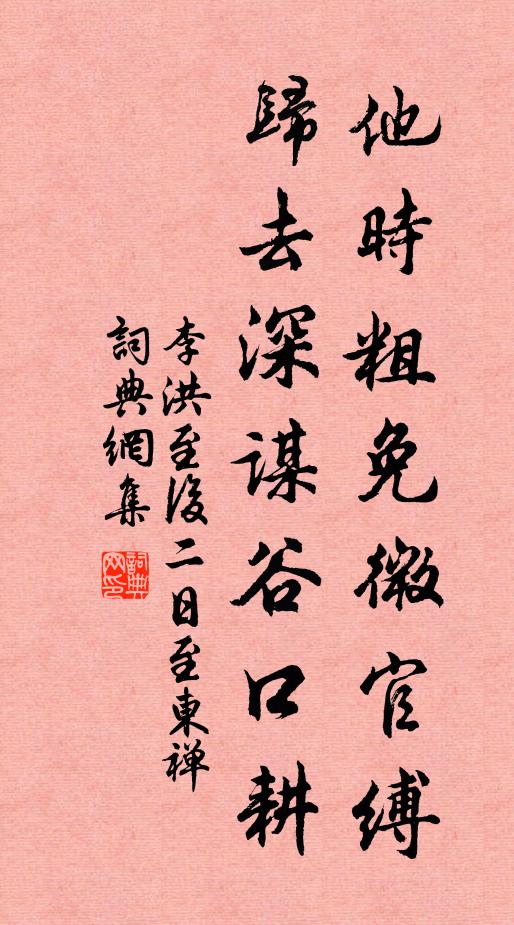 他時粗免微官縛
歸去深謀谷口耕
李洪至後二日至東禅
詞典網集
詞典網印